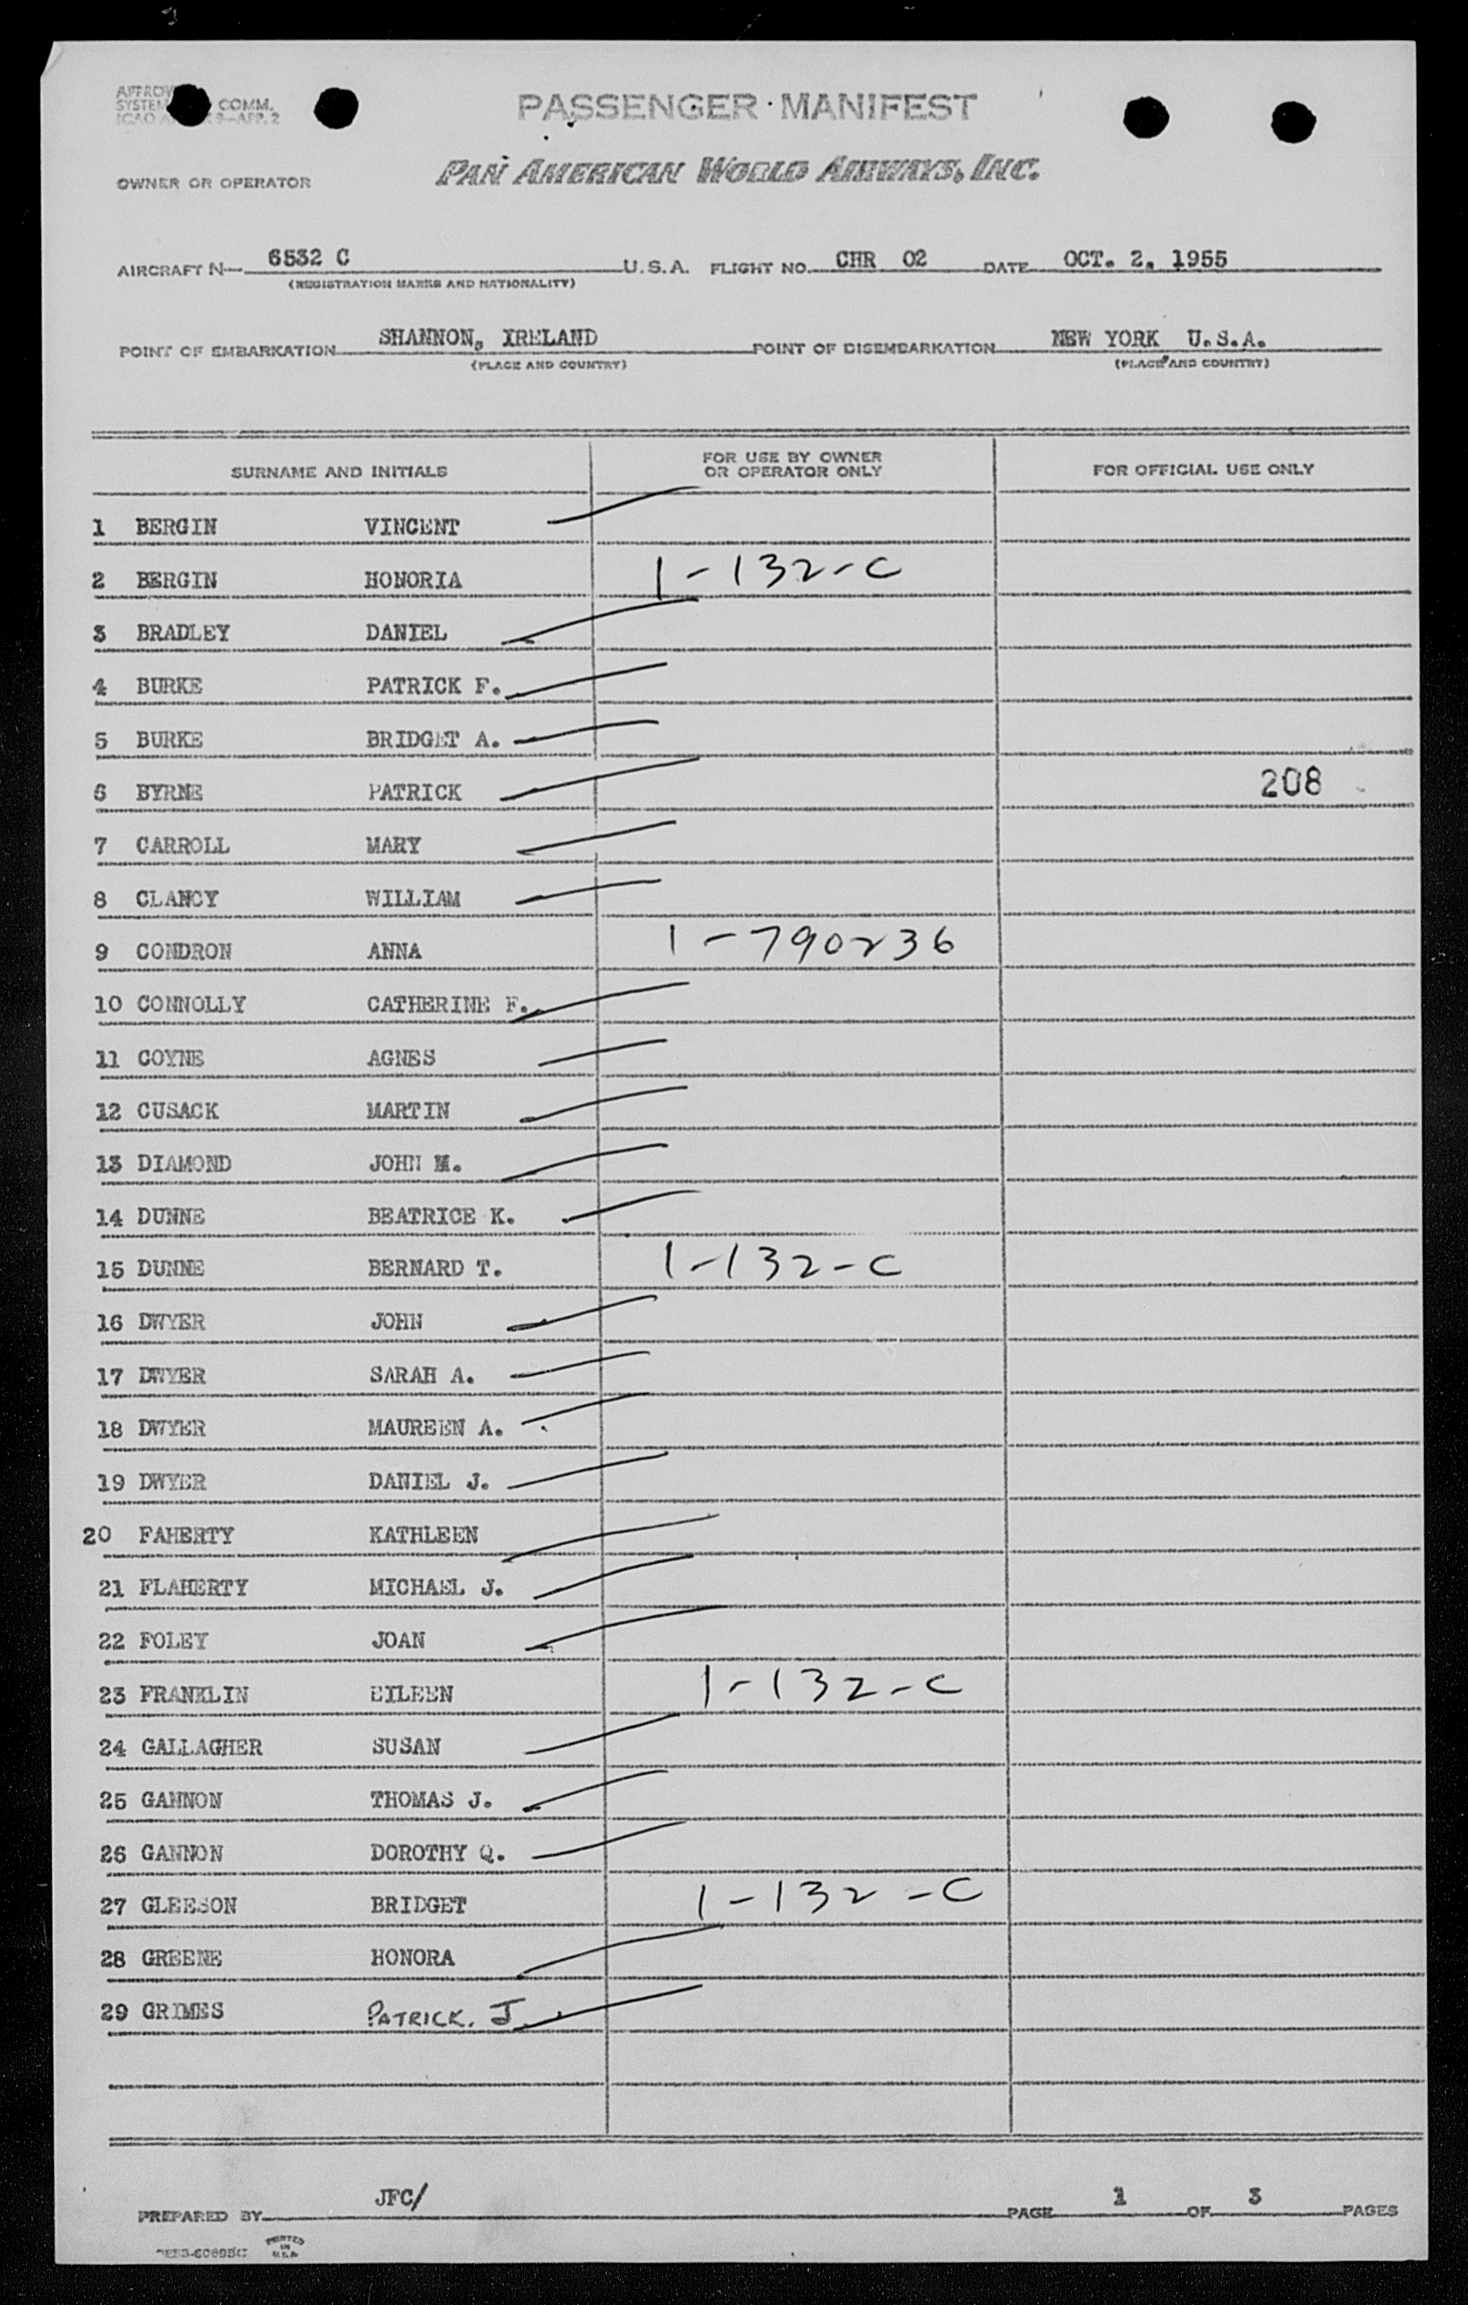 PASSENGER MANIFEST
SYSTEM COMM.
9-APP. 2
OWNER OR OPERATOR PAN AMERICAN WORLD AIRWAYS, INC.
AIRCRAFT N- 6532 C U.S.A. FLIGHT NO. CHR 02 DATE OCT. 2, 1955
(REGISTRATION MARKS AND NATIONALITY)
POINT OF EMBARKATION SHANNON, IRELAND POINT OF DISEMBARKATION NEW YORK U.S.A.
(PLACE AND COUNTRY) (PLACE AND COUNTRY)
SURNAME AND INITIALS FOR USE BY OWNER OR OPERATOR ONLY FOR OFFICIAL USE ONLY
1 BERGIN VINCENT
2 BERGIN HONORIA 1-132-C
3 BRADLEY DANIEL
4 BURKE PATRICK F.
5 BURKE BRIDGET A.
6 BYRNE PATRICK 208
7 CARROLL MARY
8 CLANCY WILLIAM
9 CONDRON ANNA 1-790236
10 CONNOLLY CATHERINE F.
11 COYNE AGNES
12 CUSACK MARTIN
13 DIAMOND JOHN M.
14 DUNNE BEATRICE K.
15 DUNNE BERNARD T. 1-132-C
16 DWYER JOHN
17 DWYER SARAH A.
18 DWYER MAUREEN A.
19 DWYER DANIEL J.
20 FAHERTY KATHLEEN
21 FLAHERTY MICHAEL J.
22 FOLEY JOAN
23 FRANKLIN EILEEN 1-132-C
24 GALLAGHER SUSAN
25 GANNON THOMAS J.
26 GANNON DOROTHY Q.
27 GLEESON BRIDGET 1-132-C
28 GREENE HONORA
29 GRIMES PATRICK. J.
PREPARED BY JFC/ PAGE 1 OF 3 PAGES
PRINTED IN U.S.A.